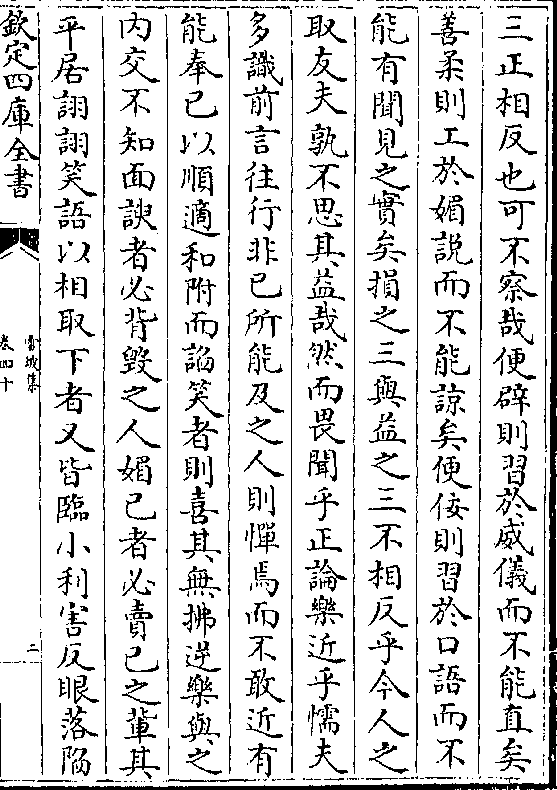 三正相反也可不察哉便辟則習於威儀而不能直矣
善柔則工於媚說而不能諒矣便佞則習於口語而不
能有聞見之實矣損之三與益之三不相反乎今人之
取友夫孰不思其益哉然而畏聞乎正論樂近乎懦夫
多識前言往行非已所能及之人則憚焉而不敢近有
能奉已以順適和附而謟笑者則喜其無拂逆樂與之
内交不知面諛者必背毀之人媚已者必賣已之軰其
平居詡詡笑語以相取下者又皆臨小利害反眼落陷
欽定四庫全書
雪坡集
卷四十
二